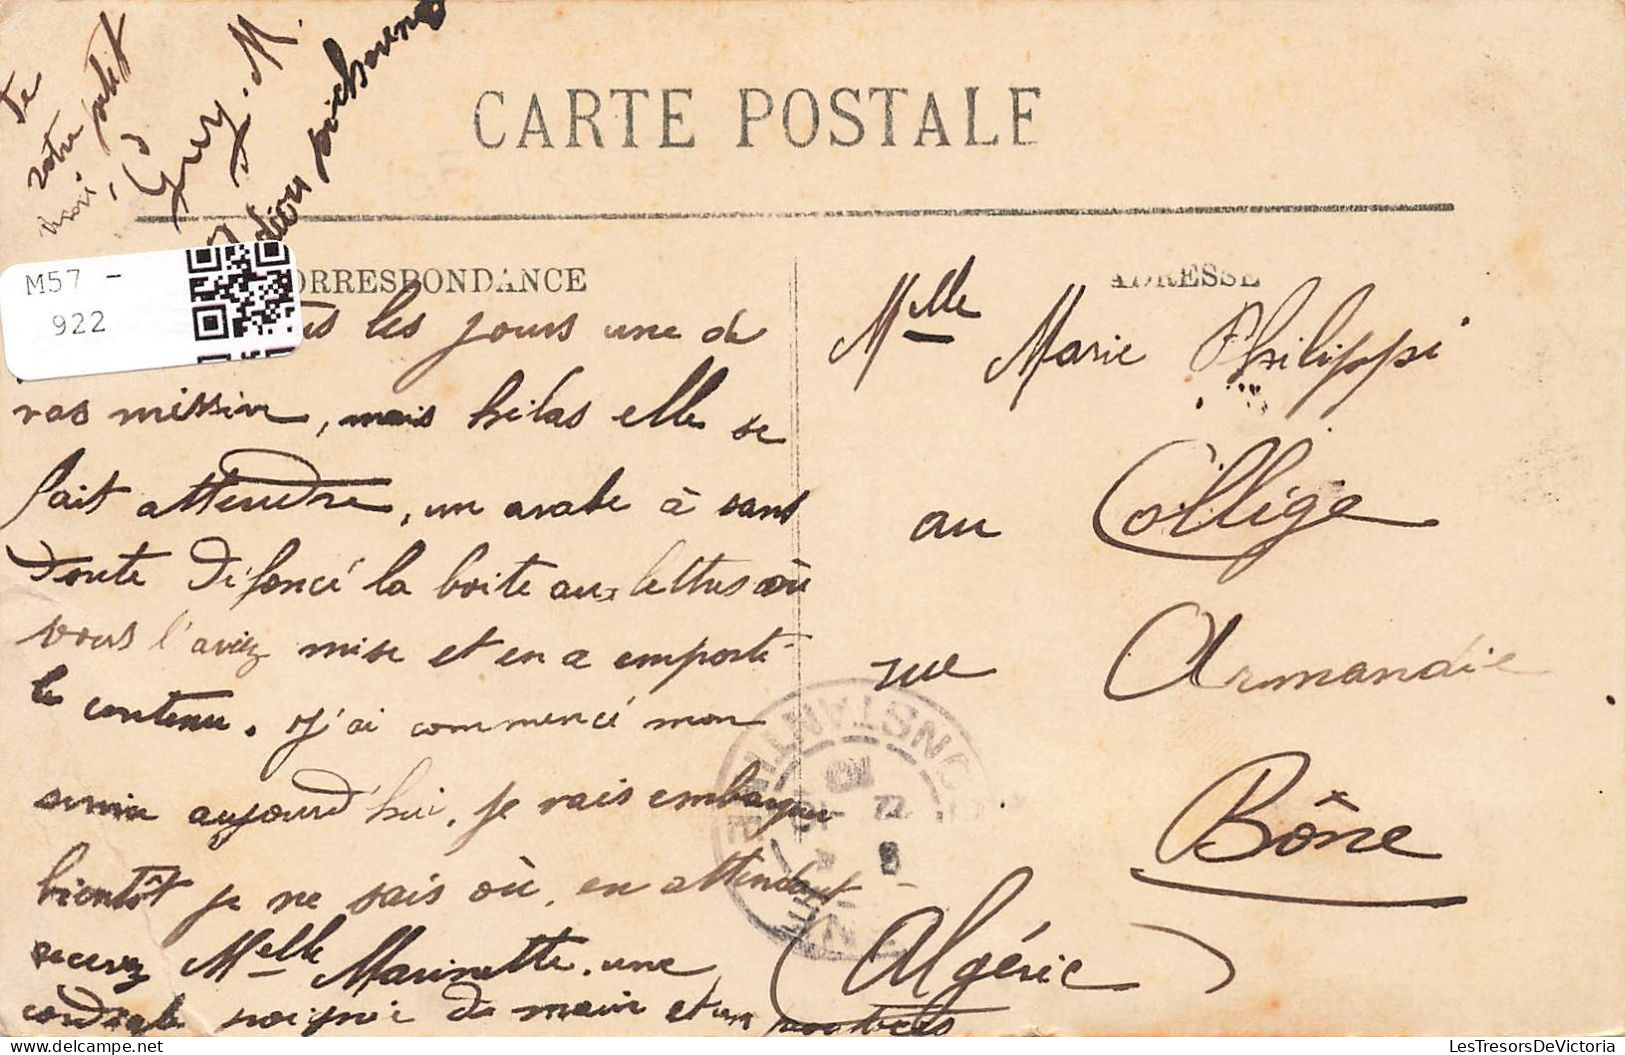 CARTE POSTALE
CORRESPONDANCE
ADRESSE
M57 -
922
les jours une de
vos missive, mais hélas elle se
fait attendre, un arabe à sans
doute défoncé la boite aux lettres où
vous l'aviez mise et en a emporté
le contenu. J'ai commencé mon
service aujourd'hui, je vais embarquer
bientôt je ne sais où, en attendant
recevez Melle Marinette, une
cordiale poignée de main et un
de
votre petit
Guy. M.
Mlle Marie Philippi
au Collège
rue Armandie
Bône
(Algérie)
CONSTANTINE
LesTresorsDeVictoria.com